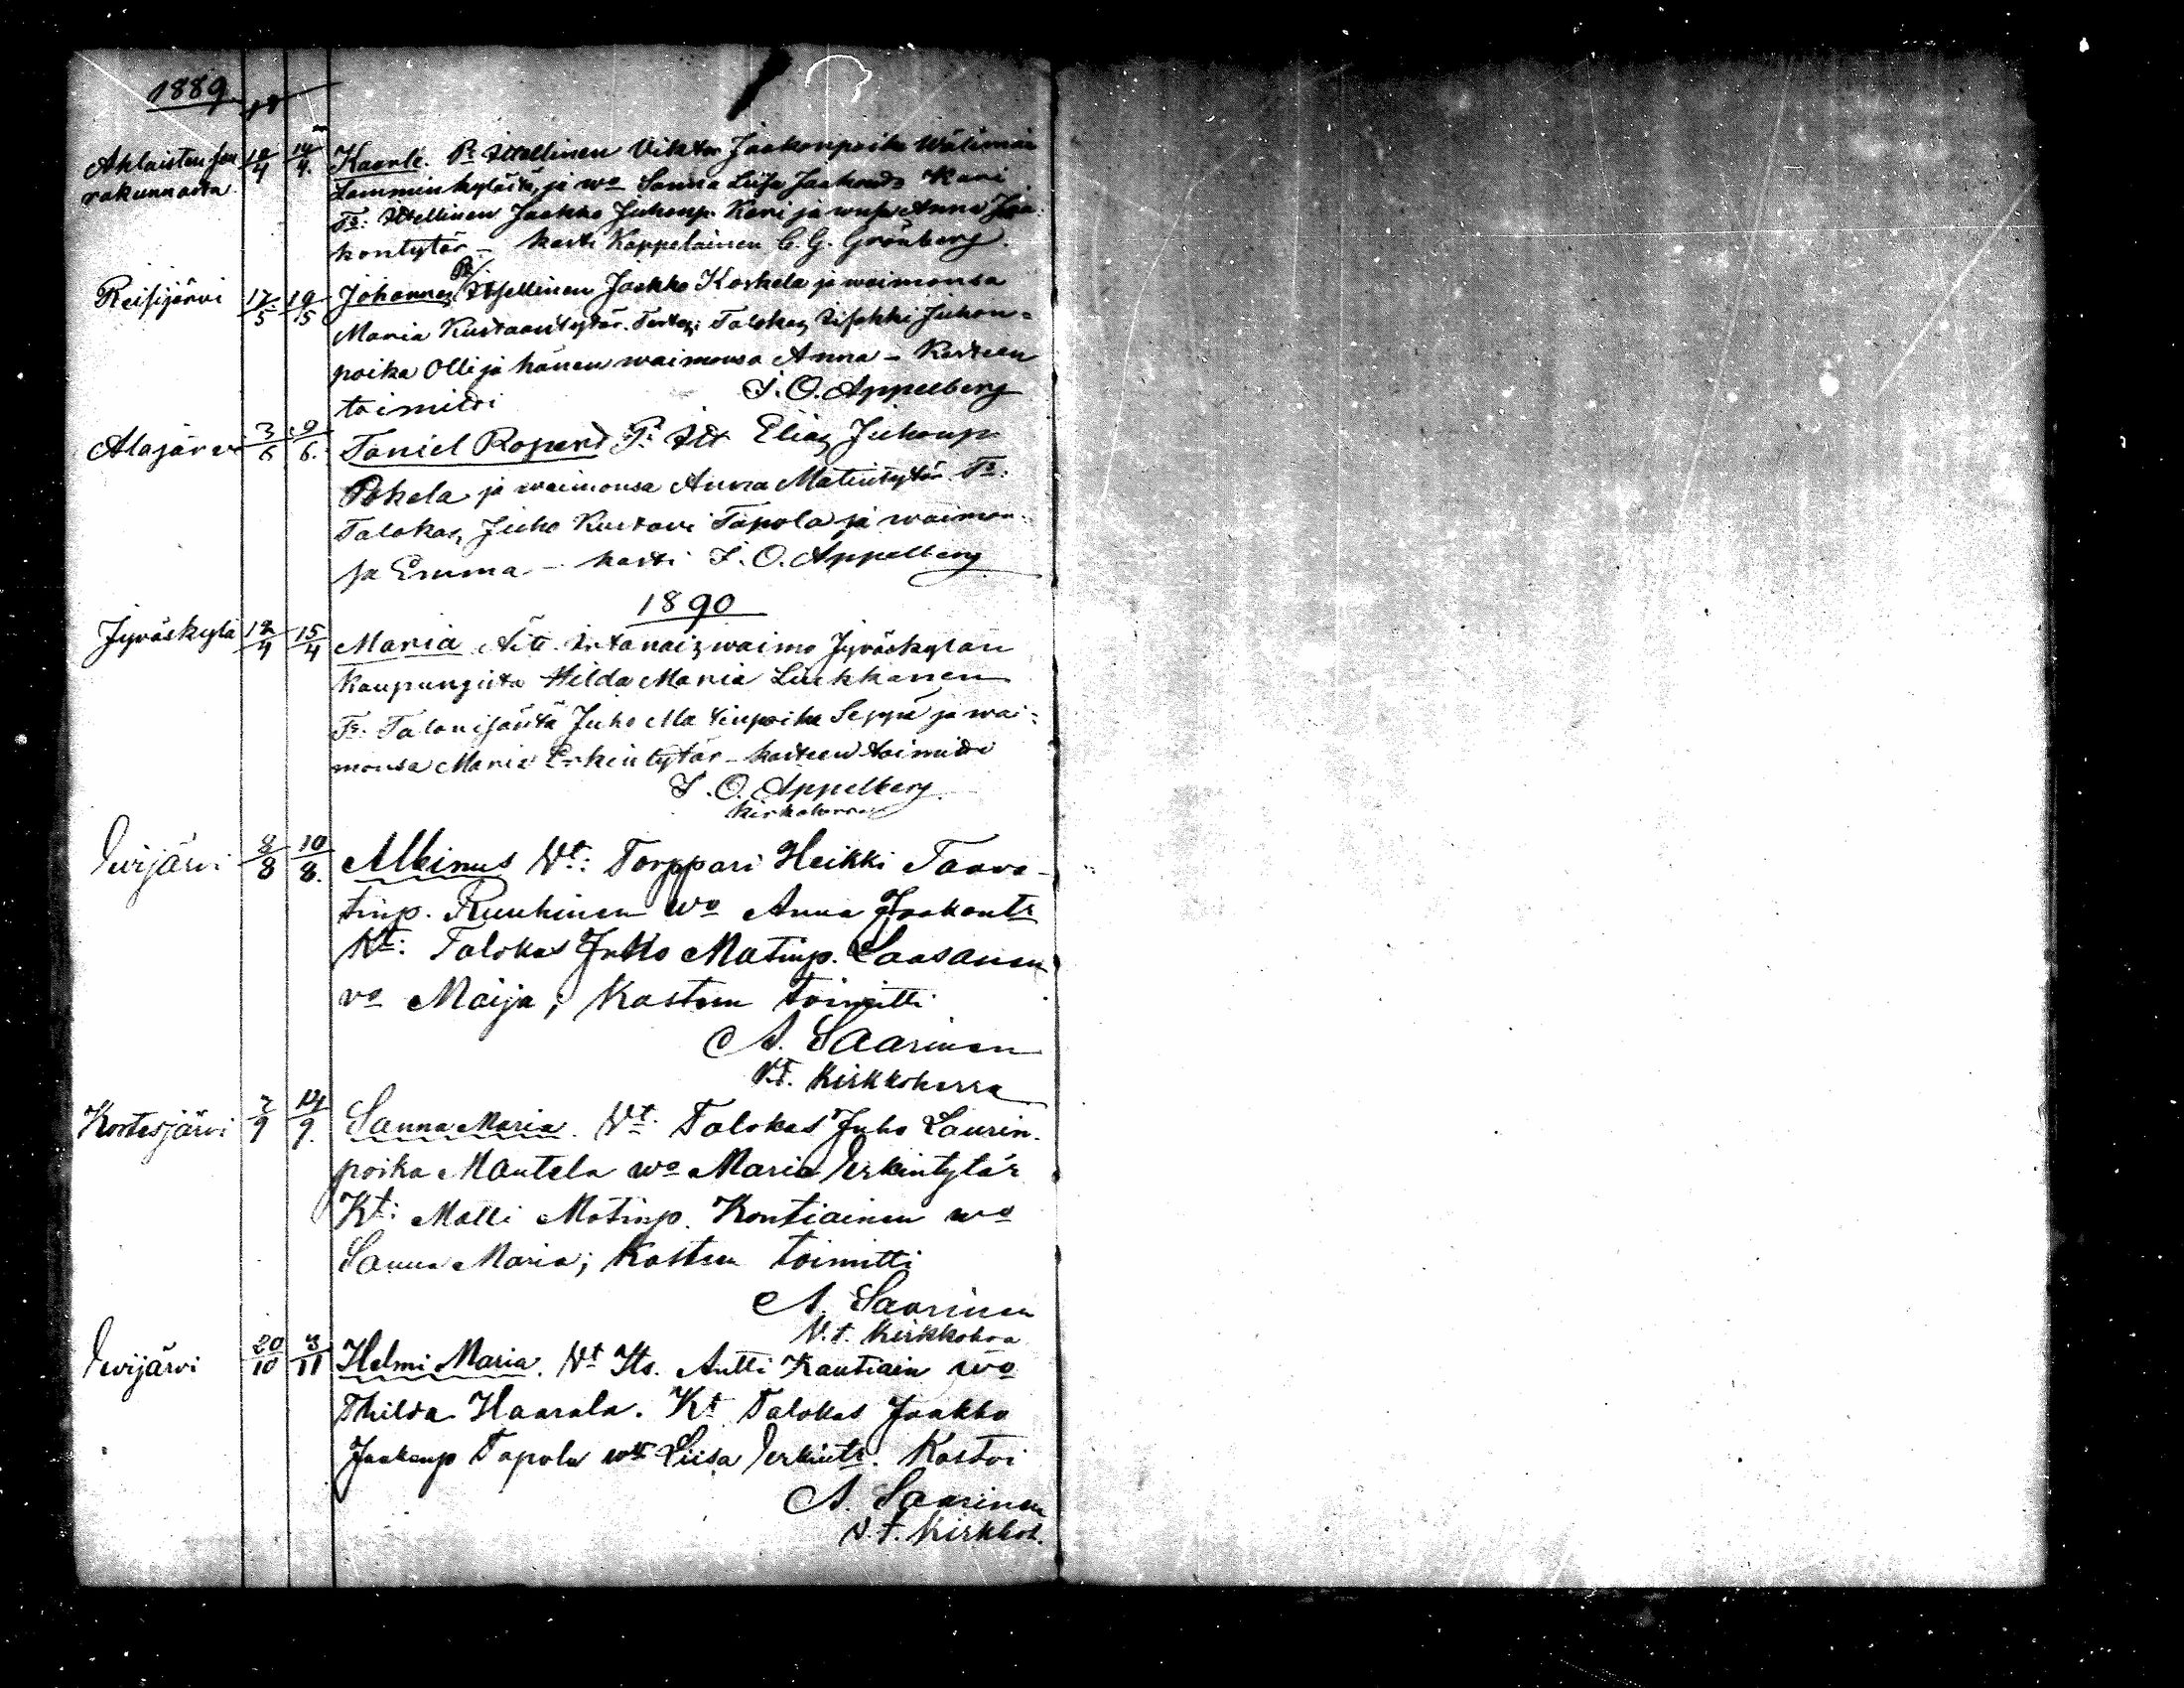 1889
Ahlaisten seu 12/4 14/4. Kaarle. Ps Itsellinen Viktor Jaakonpoika Wälimaa
rakunnasta Lamminkylästä, ja wo Sanna Liisa Jaakonds Kari
Ts: Itsellinen Jaakko Juhonp. Kari ja waimo Anna Jaa-
kontytär – kasti Kappelainen C. G. Grönberg.
Reisijärvi 17/5 19/5 Johannes Itsellinen Jaakko Koskela ja waimonsa
Maria Kustaantytär. Talokas Iisakki Juhon-
poika Olli ja hänen waimonsa Anna – Kasteen
toimitti J. O. Appelberg
Alajärvi 3/6 9/6. Taniel Ropert Ps Its Elias Juhonp.
Pokela ja waimonsa Anna Matintytär. Ts:
Talokas, Juho Kustavi Tapola ja waimon-
sa Emma – kasti J. O. Appelberg
1890
Jyväskylä 12/4 15/4 Maria Äiti. Irtonais waimo Jyväskylän
Kaupungista Hilda Maria Liukkanen
Ts. Talonisäntä Juho Matinpoika Seppä ja wai-
monsa Maria Erkintytär – kasteen toimitti
J. O. Appelberg
Kirkoherra
Ewijärvi 8/8 10/8. Albinus Vt: Torppari Heikki Taawe-
tinp. Ruuhinen wo Anna Jaakontr
Kt: Talokas Juho Matinp. Laasanen
vo Maija; Kasteen toimitti
A. Saarinen
V.T. Kirkkoherra
Kortesjärvi 7/9 14/9. Sanna Maria. Vt: Talokas Juho Laurin-
poika Mantela wo Maria Erkintytär
Kt: Matti Matinp. Kontiainen wo
Sanna Maria; Kasteen toimitti
A. Saarinen
V.t. Kirkkohra
Ewijärvi 20/10 3/11 Helmi Maria. Vt Its. Antti Kautiain wo
Thilda Haarala. Kt Talokas Jaakko
Jaakonp Tapola wo Liisa Erkintr. Kastoi
A. Saarinen
V.t. Kirkkoh.